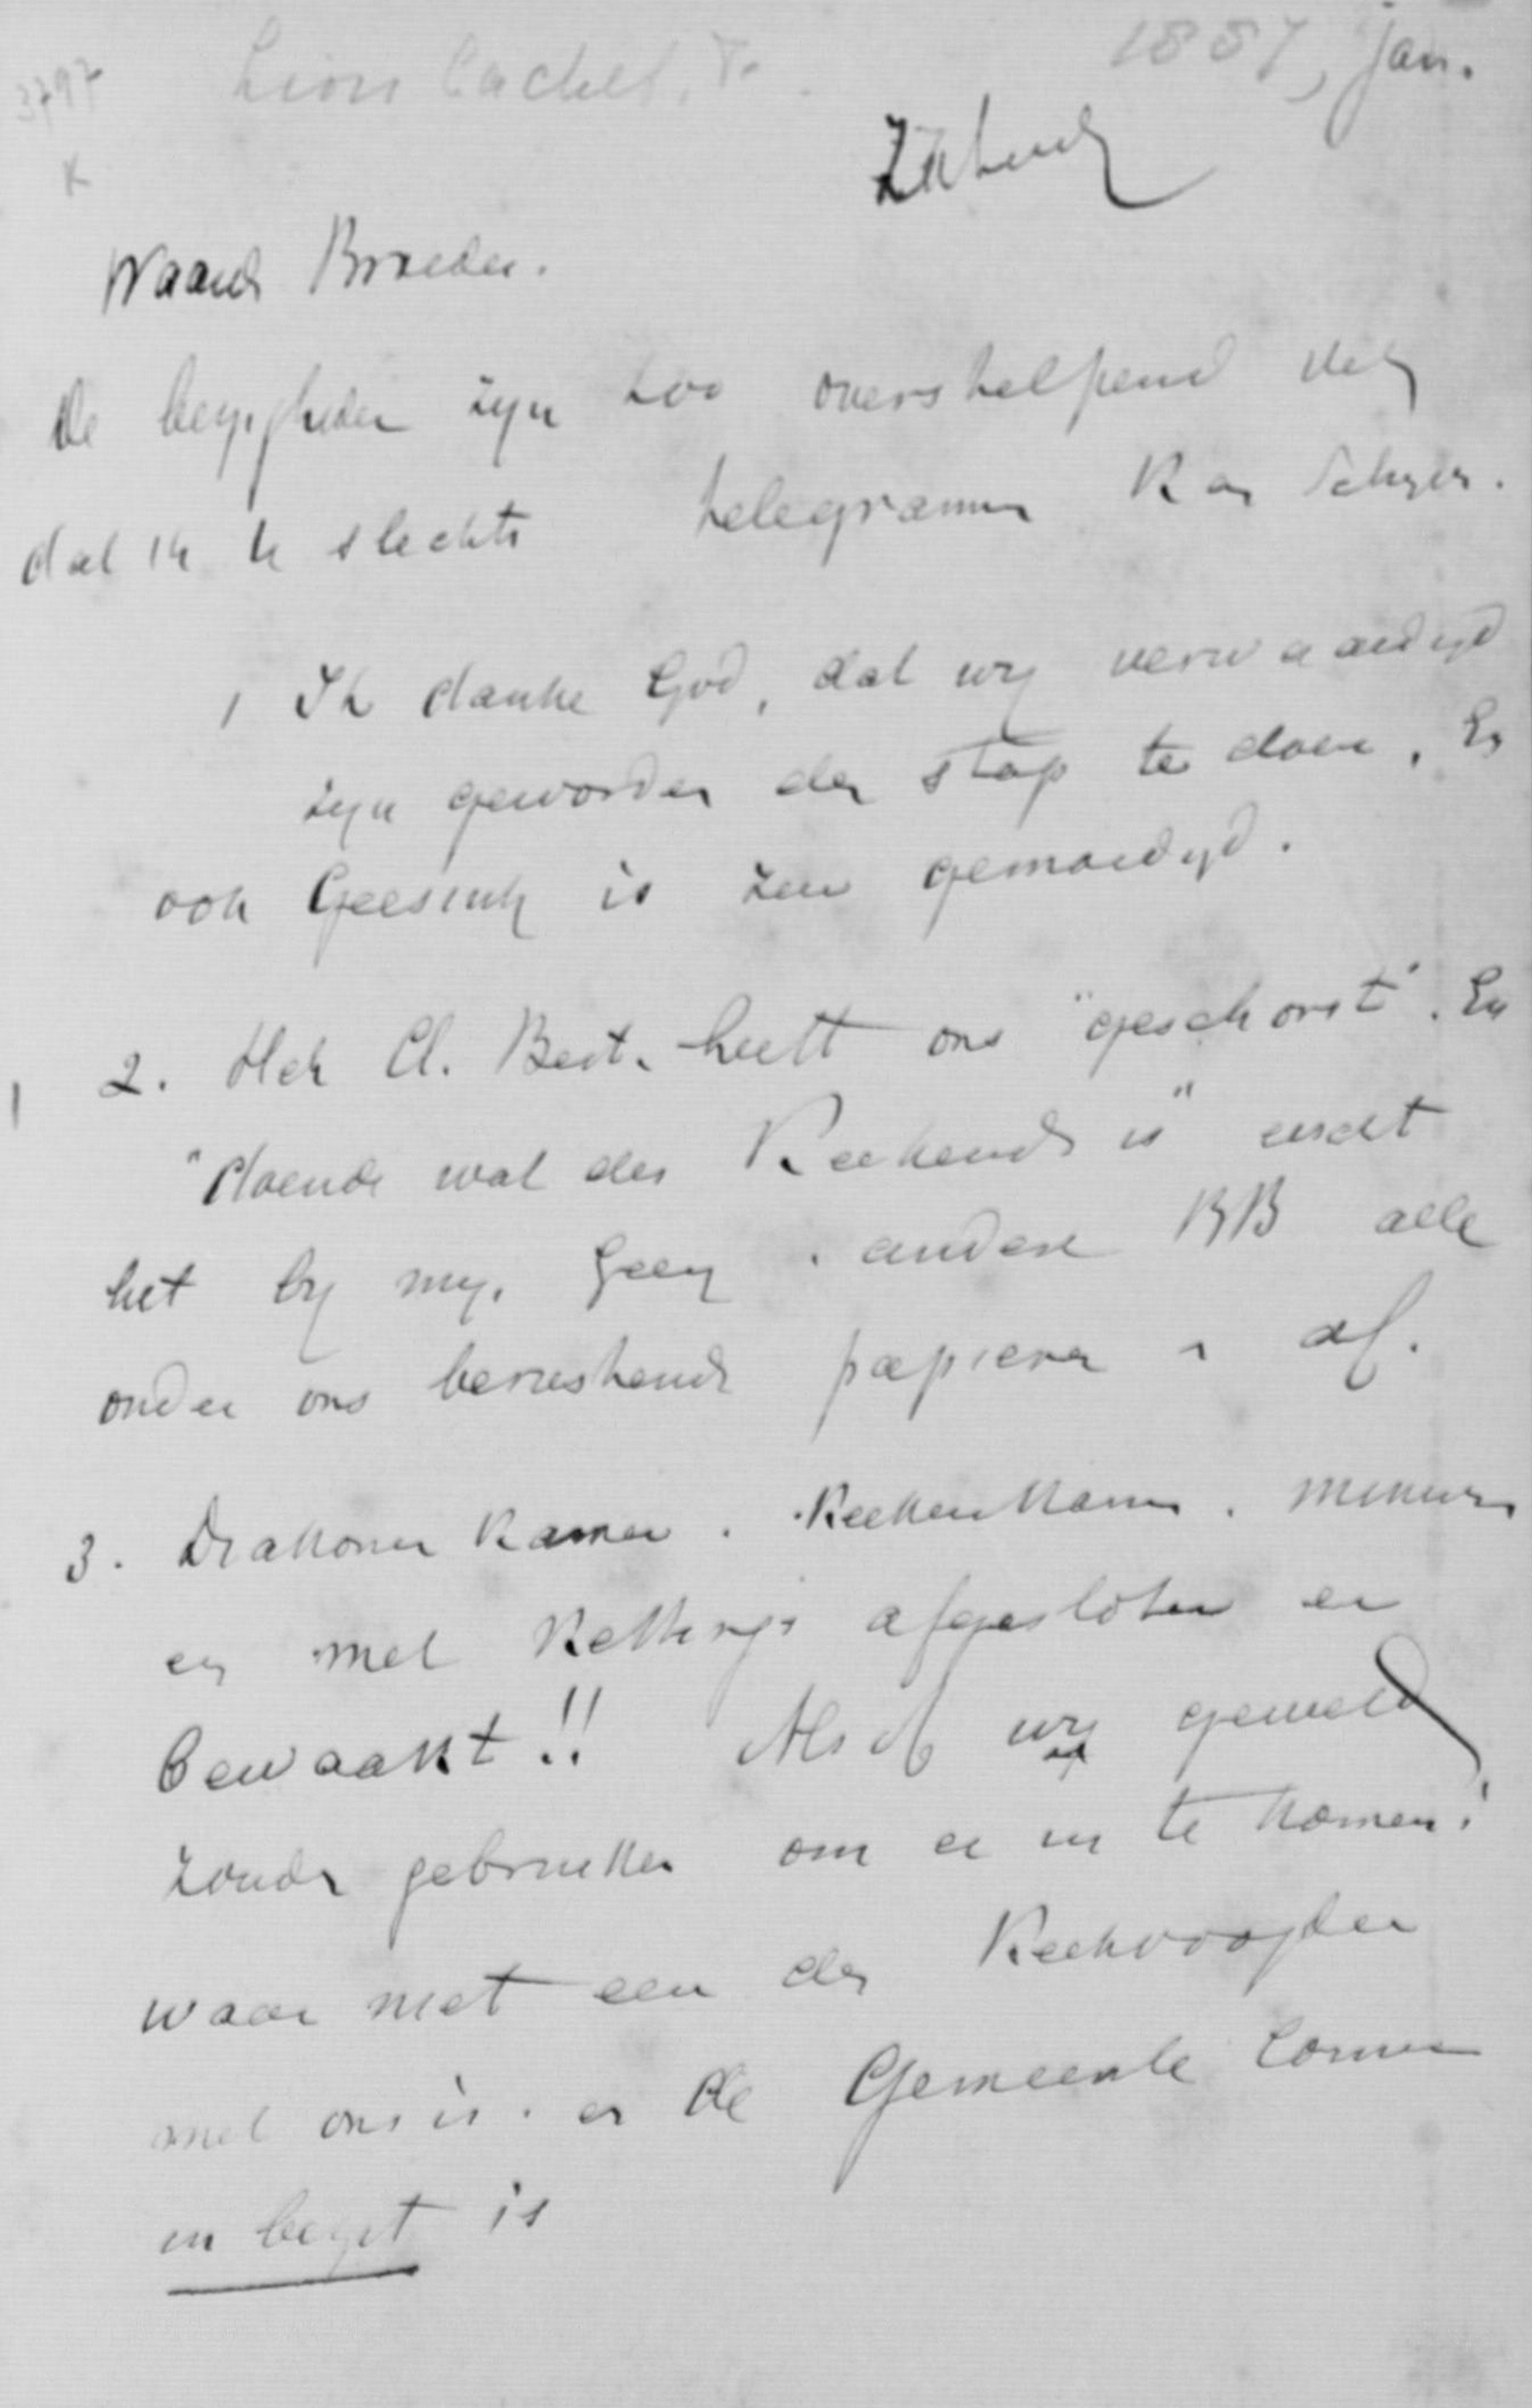 3797 Lion Cachet, F. 1887, jan.
x
Waarde Broeder.
De bezigheden zyn zoo overstelpend
dat ik U slechts telegrammen kan schryven.
1 Ik danke God, dat wy verwaardigd
zyn geworden den stap te doen. En
ook Geesink is zeer gemoedigd.
2. Het Cl. Best. heeft ons "geschorst". En
"doende wat des Kerkeraads is" eischt
het by my, Geen. andere BB alle
onder ons berustende papieren af.
3. Diakonie kamer. Kerkekamer.
en met kettings afgesloten en
bewaakt!! Als of wy geweld
zouden gebruiken om er in te komen!
waar niet een der Kerkvoogden
met ons is. en de Gemeente Comm
in bezit is